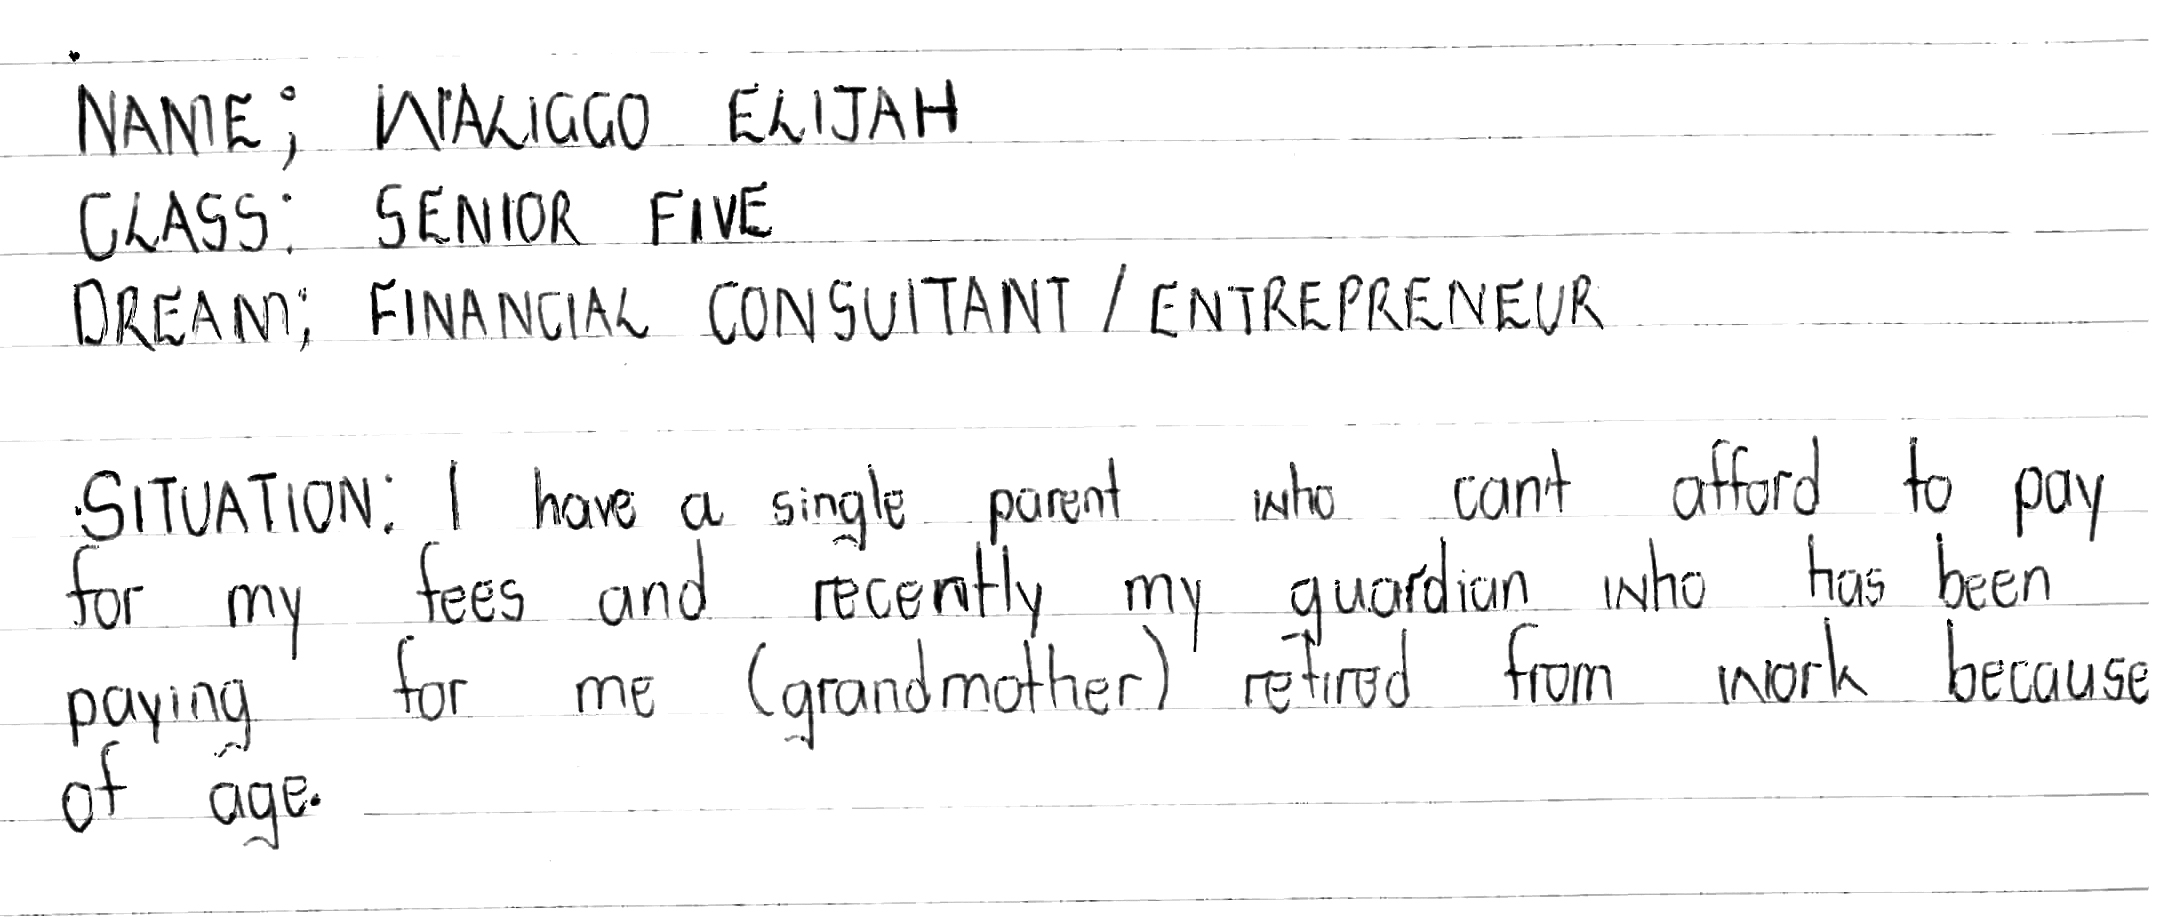 NAME; WALIGGO ELIJAH
CLASS: SENIOR FIVE
DREAM; FINANCIAL CONSULTANT / ENTREPRENEUR
SITUATION: I have a single parent who cant afford to pay
for my fees and recently my guardian who has been
paying for me (grandmother) retired from work because
of age.